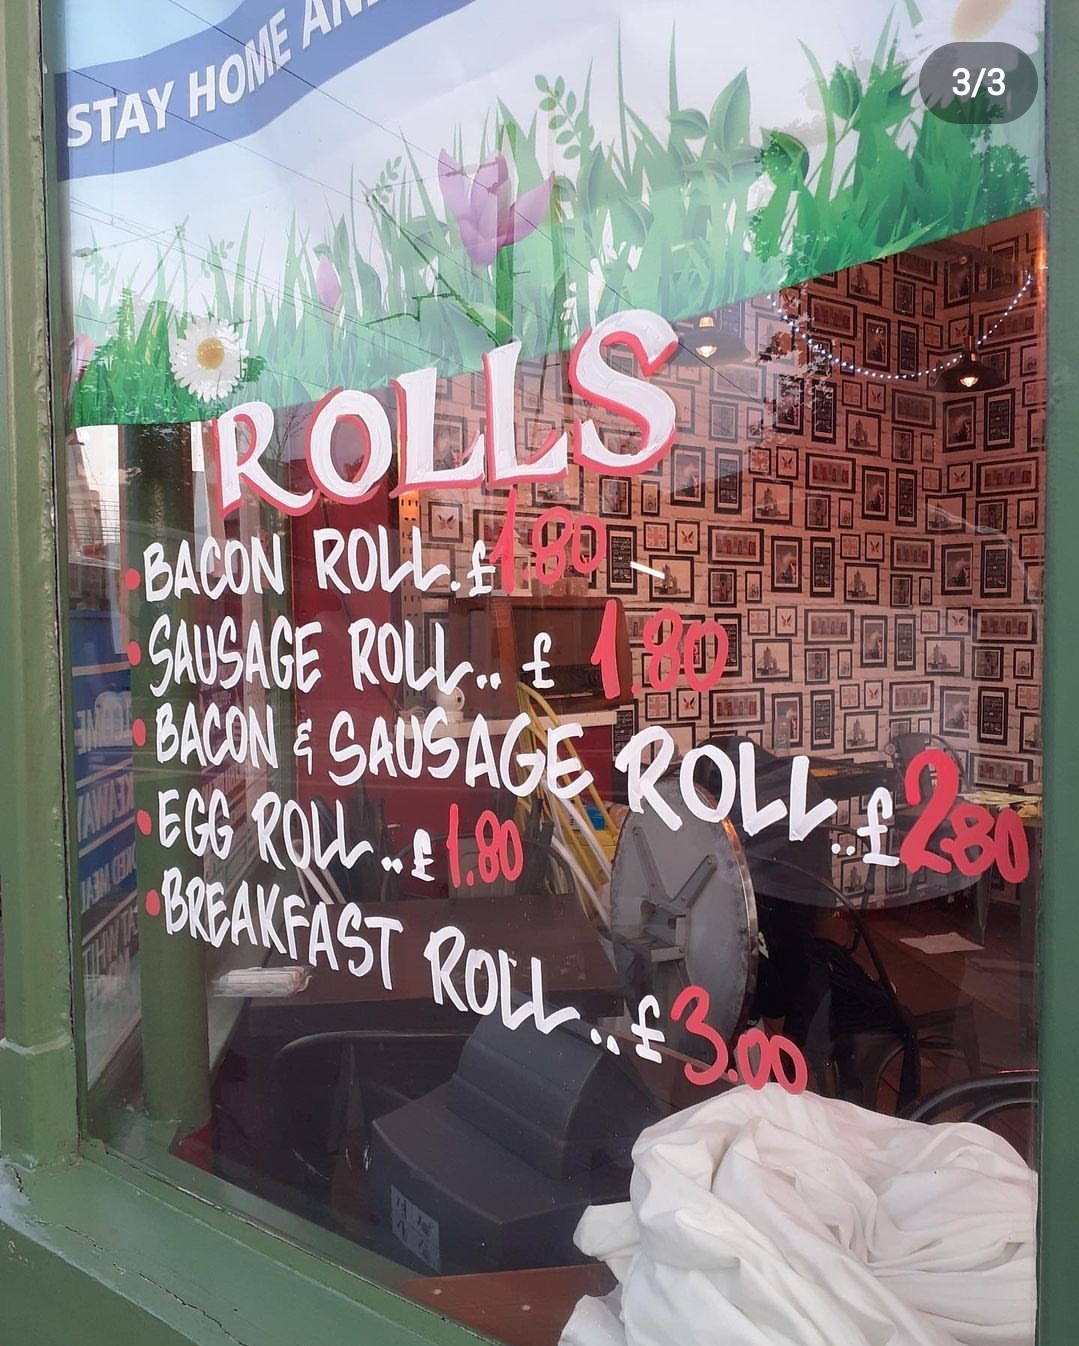 3/3
STAY HOME AND
ROLLS
• BACON ROLL.£1.80
• SAUSAGE ROLL.. £ 1.80
• BACON & SAUSAGE ROLL..£2.80
• EGG ROLL..£1.80
• BREAKFAST ROLL..£3.00